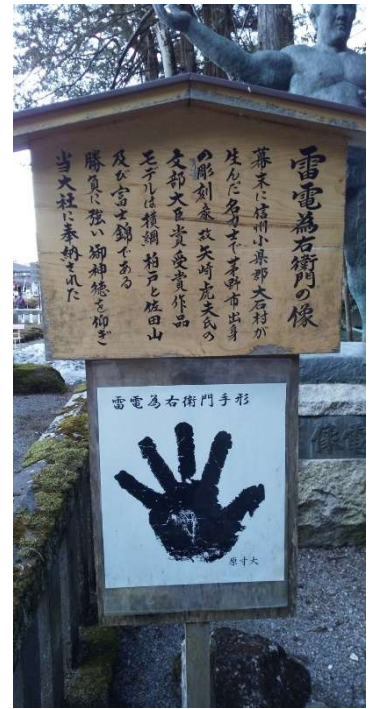 雷電為右衛門の像
幕末に信州小県郡大石村が
生んだ名力士で茅野市出身
の彫刻家故矢崎虎夫氏の
文部大臣賞受賞作品
モデルは横綱 柏戸と佐田山
及び富士錦である
勝負に強い御神徳を仰ぎ
当大社に奉納された
雷電為右衛門手形
原寸大